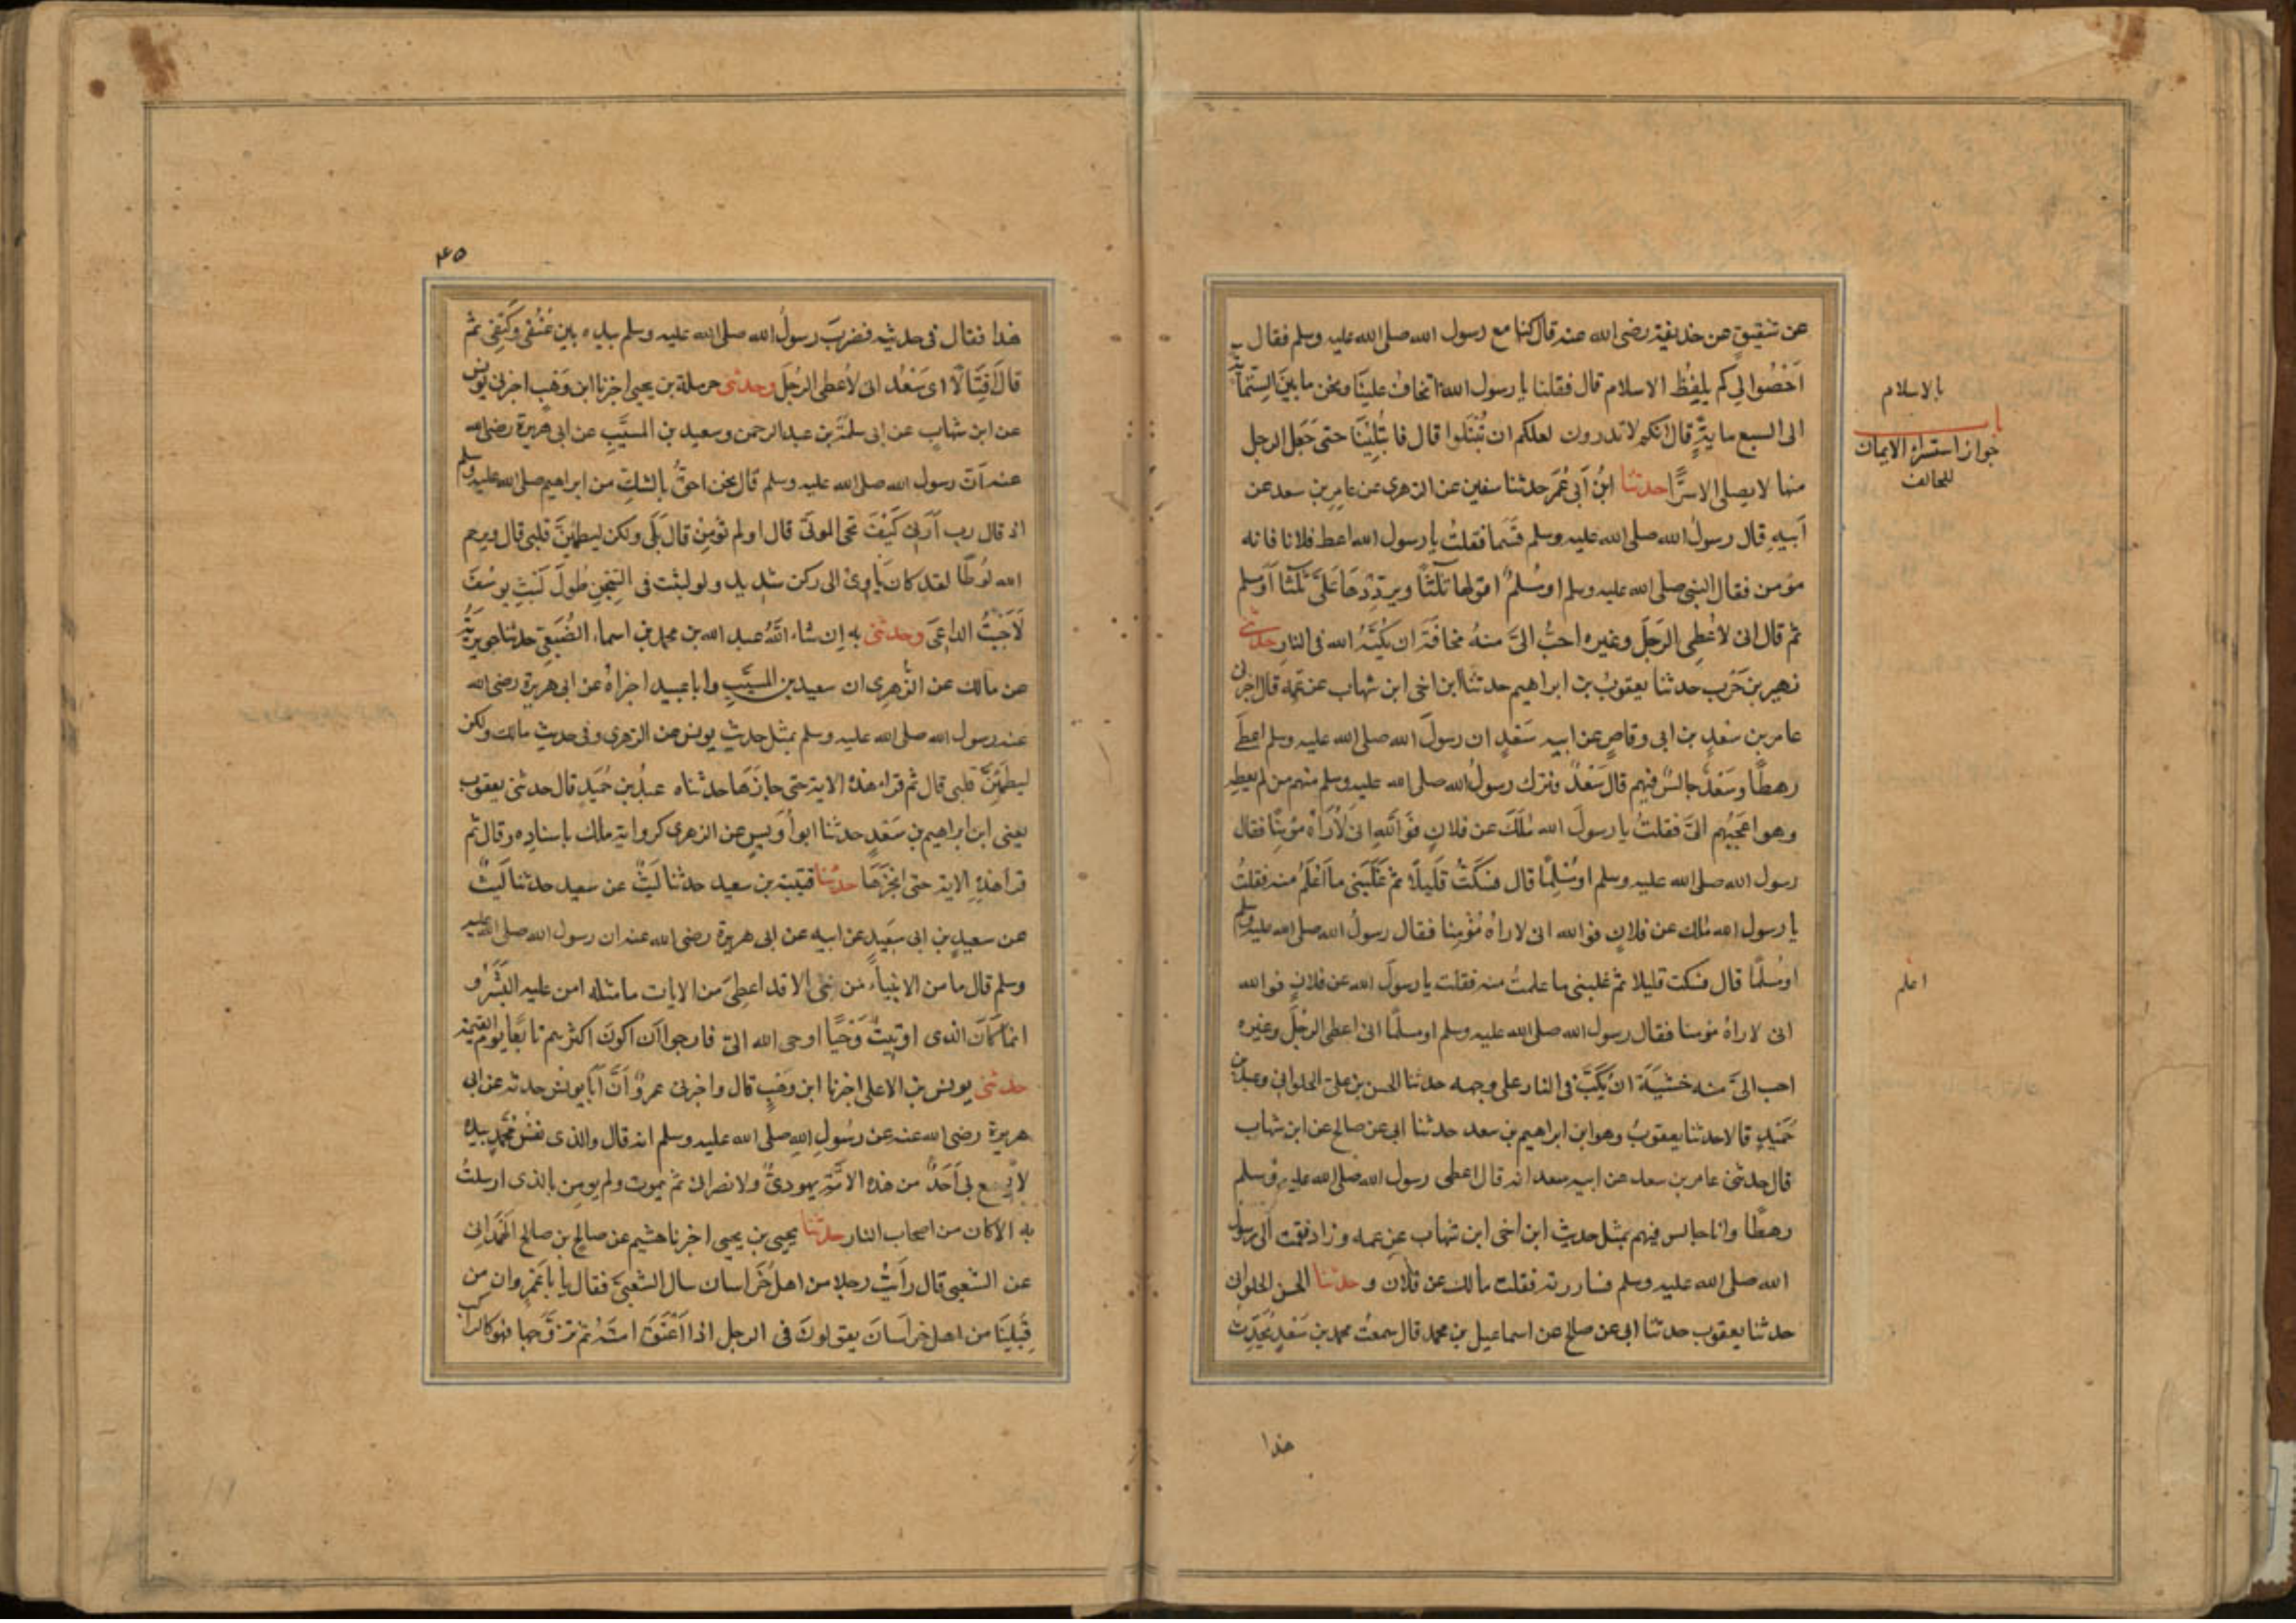 عن شقيق عن حذيفة رضى الله عنه قال كنا مع رسول الله صلى الله عليه وسلم فقال
اَحْصُوا لِي كم يلفِظ الاسلام قال فقلنا يا رسول الله اتخاف علينا ونحن ما بين الستمائة
الى السبع ماية قال انكم لا تدرون لعلكم ان تُبْتَلوا قال فابتُلِينَا حتى جَعل الرجل
منها لا يصلى الا سرًّا حدثنا ابنُ أبى عُمَر حدثنا سفين عن الزهرى عن عامِرِ بن سعد عن
اَبيهِ قال رسولُ الله صلى الله عليه وسلم قسَما فقلتُ يا رسول الله اعط فلانا فانه
مؤمن فقال النبى صلى الله عليه وسلم او مُسْلمٌ اقولها ثلثًا ويردِّدُهَا عَلَىَّ ثلثًا اَوْ مسلم
ثم قال انى لاُعْطِى الرَجلَ وغيره احبُّ الىَّ منهُ مخافَةَ ان يَكُبَّهُ الله فى النارِ حدثنى
زهير بن حَرْب حدثنا يعقوبُ بن ابراهيم حدثنا ابن اخى ابن شهاب عن عَمِّه قال اخبرنى
عامر بن سَعْدِ بن ابى وقاصٍ عن ابيه سَعْدٍ ان رسولَ الله صلى الله عليه وسلم اعطَى
رهطًا وسَعْدٌ جالسٌ فيهم قال سَعْدٌ وترك رسولُ الله صلى الله عليه وسلم منهم من لم يعطِه
وهو اعجَبُهم الىَّ فقلتُ يا رسولَ الله مَالَكَ عن فلانٍ فَوَاللهِ انى لاُرَاهُ مؤمِنًا فقال
رسول الله صلى الله عليه وسلم او مُسْلِمًا قال فسَكَتُّ قَلِيلًا ثم غَلَبَنى ما اَعْلَمُ منه فقلتُ
يا رسول الله مَالك عن فلانٍ فو الله انى لاراهُ مُؤمِنا فقال رسولُ الله صلى الله عليه وسلم
او مُسلمًا قال فسكت قليلا ثم غلبنى ما علمتُ منه فقلت يا رسولَ الله عن فلانٍ فو الله
انى لاراهُ مؤمنا فقال رسول الله صلى الله عليه وسلم او مسلمًا انى اعطى الرجُلَ وغيره
احب الىَّ منه خَشيَةَ ان يُكَبَّ فى النار على وجهه حدثنا الحسن بن على الحلوانى وعبد بن
حُمَيْدٍ قالا حدثنا يعقوبُ وهو ابن ابراهيم بن سعد حدثنا ابى عن صالح عن ابن شهاب
قال حدثنى عامر بن سعد عن ابيه سعد انه قال اعطى رسول الله صلى الله عليه وسلم
رهطًا وانا جالس فيهم بمثل حديث ابن اخى ابن شهاب عن عمه وزاد فقمت الى رسول
الله صلى الله عليه وسلم فساررته فقلت مالك عن فلان و حدثنا الحسن الحلوانى
حدثنا يعقوب حدثنا ابى عن صالح عن اسماعيل بن محمد قال سمعتُ محمد بن سَعْدٍ يُحَدِّثُ
بالاسلام
باب
جواز استسرار الايمان
للخائف
اعلم
هذا
٤٥
هذا فقال فى حديثه فضربَ رسولُ الله صلى الله عليه وسلم بيده بين عُنُقى وكَتِفى ثم
قالَ اَقِتَالًا اى سَعْدُ انى لاُعطى الرجُلَ وحدثنى حرملة بن يحيى اخبرنا ابن وَهْبٍ اخبرنى يونس
عن ابن شهابٍ عن ابى سلمَةَ بن عبد الرحمن وسعيد بن المسيَّبِ عن ابى هريرة رضى الله
عنه اَن رسول الله صلى الله عليه وسلم قال نحن احقُّ بالشكِّ من ابراهيم صلى الله عليه وسلم
اذ قال رب اَرِنى كَيْفَ تحى الموتَى قال اولم تؤمِنْ قال بَلَى ولكن ليطمئِنَّ قلبى قال ويرحم
الله لُوطًا لقد كان يَاوِىْ الى ركن شديد ولو لبثت فى السِّجْنِ طُولَ لَبْثِ يوسُفَ
لَاَجَبْتُ الداعِىَ وحدثنى به ان شاء اللهُ عبد الله بن محمد بن اسماء الضُّبَعِى حدثنا جويرية
عن مالك عن الزُّهرِى ان سعيد بن المسيَّبِ وابا عبيد اخبراهُ عن ابى هريرة رضى الله
عنه رسول الله صلى الله عليه وسلم بمثل حديث يونس عن الزهرى وفى حديث مالك ولكن
ليطمَئِنَّ قلبى قال ثم قراء هذه الاية حتى جازَهَا حدثناه عبدُ بن حُمَيْدٍ قال حدثنى يعقوب
يعنى ابن ابراهيم بن سَعْدٍ حدثنا ابو اُوَيسٍ عن الزهرى كرواية مالك باسنادِه وقال ثم
قرا هذِهِ الاية حتى انجَزَهَا حدثنا قتيبة بن سعيد حدثنا لَيْثٌ عن سعيد حدثنا لَيثٌ
عن سعيدِ بن ابى سَعِيدٍ عن ابيه عن ابى هريرة رضى الله عنه ان رسول الله صلى الله عليه
وسلم قال ما من الانبياءِ من نبى الا قد اعطِىَ من الايات ما مثله امن عليه البَشَرُ و
انما كَانَ الذى اوتِيتُ وَحْيًا اوحى الله الىَّ فارجوا اَن اكونَ اكثرهم تابعًا يوم القيمة
حدثنى يونس بن الاعلى اخبرنا ابن وَهْبٍ قال واخبرنى عمروٌ اَنَّ اَبَا يونُسَ حدثه عن ابى
هريرة رضى الله عنه عن رسُولِ اللهِ صلى الله عليه وسلم انه قال والذى نفسُ محمَّدٍ بيده
لا يسمع بى اَحَدٌ من هذه الامَّةِ يهودىٌّ ولا نصرانى ثم يموت ولم يومِن بالذى ارسلتُ
به الا كان من اصحاب النار حدثنا يحيى بن يحيى اخبرنا هشيم عن صالحِ بن صالح الهَمْدانى
عن الشعبى قال رأيتُ رجلا من اهل خُرَاسان سال الشعبىَّ فقال يا باعَمْرٍو ان من
قِبَلِنَا من اهل خراسَانَ يقولونَ فى الرجل اذا اَعْتَقَ امتَهُ ثم تزوَّجها فهو كالراكب